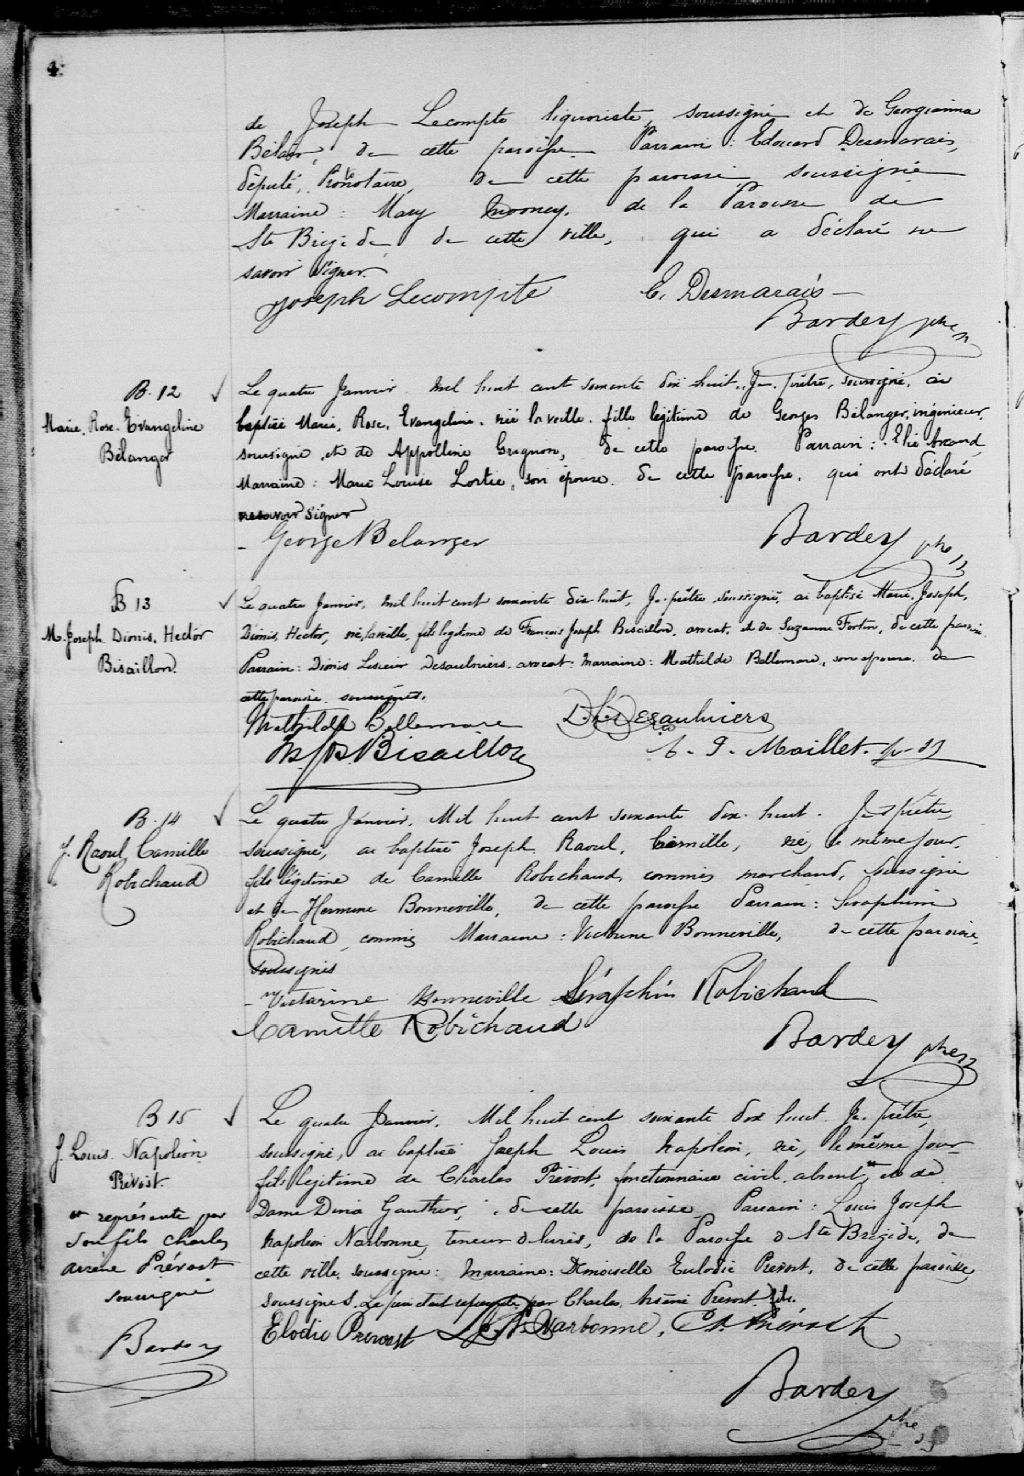 4.
de Joseph Lecompte liquoriste, soussigné et de Georgianna
Bélair, de cette paroisse. Parrain : Edouard Desmarais,
député, Pronotaire, de cette paroisse soussigné
Marraine : Mary Mooney, de la Paroisse de
Ste Brigide de cette ville, qui a déclaré ne
savoir signer.
Joseph Lecompte E. Desmarais
Bardey ptre
B. 12
Marie. Rose. Evangeline
Bélanger
Le quatre Janvier mil huit cent soixante dix huit, Je prêtre, soussigné, ai
baptisé Marie, Rose, Evangeline, née la veille, fille légitime de Georges Bélanger, ingénieur,
soussigné, et de Appolline Grignon, de cette paroisse. Parrain : Elie
Marraine : Marie Louise Lortie, son épouse de cette paroisse. qui ont déclaré
ne savoir signer
George N Belanger
Bardey ptre
B 13
M. Joseph Dionis, Hector
Bisaillon.
Le quatre Janvier, mil huit cent soixante dix huit, Je prêtre soussigné, ai baptisé Marie, Joseph,
Dionis, Hector, né la veille, fils légitime de François Joseph Bisaillon, avocat, et de Suzanne Fortin, de cette paroisse.
Parrain : Dionis Lesieur Desaulniers, avocat : Marraine : Mathilde Bellemare, son épouse de
cette paroisse soussignés.
Mathilde Bellemare D. Les. Desaulniers
Fs. Jos Bisaillon
Maillet. p. ss
B. 14
J. Raoul, Camille
Robichaud
Le quatre Janvier, Mil huit cent soixante dix huit. Je Prêtre,
soussigné, ai baptisé Joseph Raoul, Camille, né, le même jour,
fils légitime de Camille Robichaud, commis marchand, soussigné
et de Hermine Bonneville, de cette paroisse Parrain : Seraphin
Robichaud, commis Marraine : Victorine Bonneville, de cette paroisse,
soussignés
Victorine Bonneville Séraphin Robichaud
Camille Robichaud
Bardey ptre
B 15
J. Louis. Napoléon
Prévost
et représenté par
son fils Charles
Arsène Prévost
soussigné
Bardey
Le quatre Janvier, Mil huit cent soixante dix huit. Je prêtre,
soussigné, ai baptisé Joseph Louis Napoléon, né, le même jour
fils légitime de Charles Prévost, fonctionnaire civil, absent, et de
Dame Dina Gauthier, de cette paroisse Parrain : Louis Joseph
Napoléon Narbonne, teneur de livres, de la Paroisse de Ste Brigide, de
cette ville, soussigné : Marraine : Demoiselle Eulodie Prevost, de cette paroisse
soussignés. Le père étant représenté par Charles Arsène Prevost fils.
Elodie Prevost L. J. N. Narbonne, Ch. Prévost
Bardey
ptre